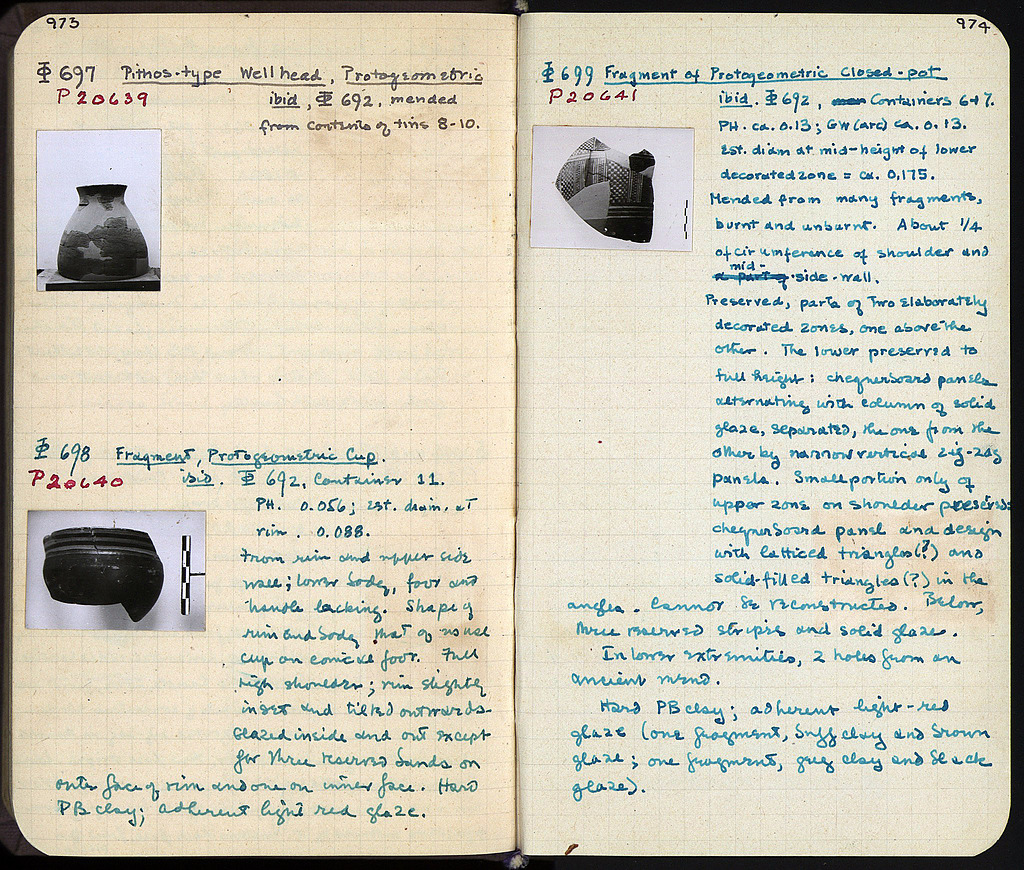 973
Φ 697 Pithos-type Wellhead, Protogeometric
P 20639 ibid, Φ 692, mended
from contents of tins 8-10.
Φ 698 Fragment, Protogeometric Cup.
P 20640 ibid. Φ 692, Container 11.
PH. 0.056; est. diam. at
rim. 0.088.
From rim and upper side
wall; lower body, foot and
handle lacking. Shape of
rim and body that of usual
cup on conical foot. Full
high shoulder; rim slightly
inset and tilted outwards.
Glazed inside and out except
for three reserved bands on
outer face of rim and one on inner face. Hard
PB clay; adherent light red glaze.
974
Φ 699 Fragment of Protogeometric Closed-pot
P 20641 ibid. Φ 692, Containers 6+7.
PH. ca. 0.13; GW (arc) ca. 0.13.
Est. diam at mid-height of lower
decorated zone = ca. 0,175.
Mended from many fragments,
burnt and unburnt. About 1/4
of cir umference of shoulder and
mid-
side-wall.
Preserved, parts of two elaborately
decorated zones, one above the
other. The lower preserved to
full height: chequerboard panels
alternating with column of solid
glaze, separated, the one from the
other by narrow vertical zig-zag
panels. Small portion only of
upper zone on shoulder preserved:
chequerboard panel and design
with latticed triangles(?) and
solid-filled triangles(?) in the
angles. Cannot be reconstructed. Below,
three reserved stripes and solid glaze.
In lower extremities, 2 holes from an
ancient mend.
Hard PB clay; adherent light-red
glaze (one fragment, buff clay and brown
glaze; one fragment, grey clay and black
glaze).